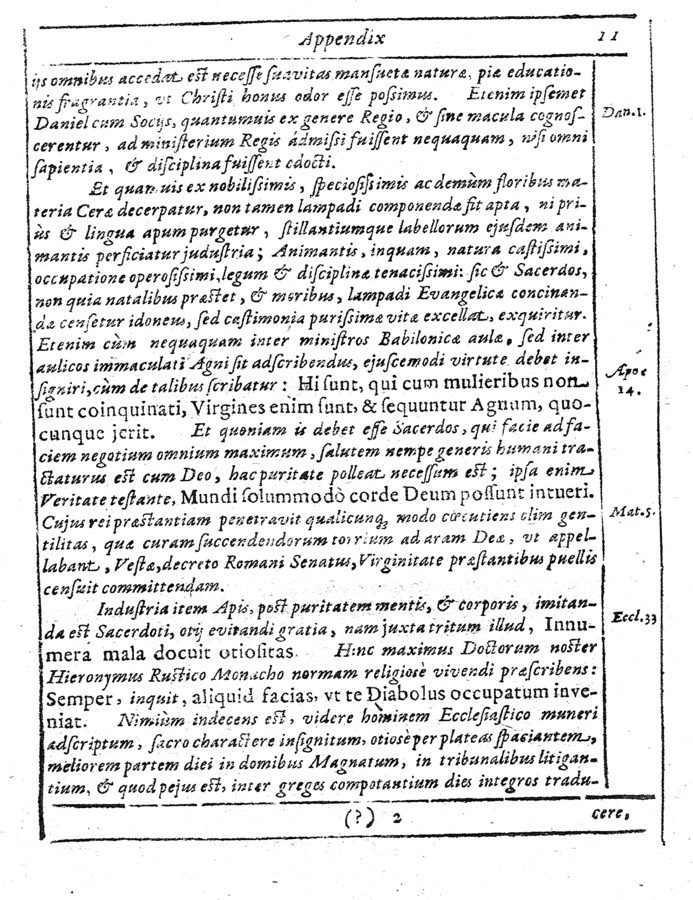 Appendix 11
ijs omnibus accedat est necesse suavitas mansuetæ naturæ, piæ educatio-
nis fragrantia, vt Christi bonus odor esse possimus. Etenim ipsemet
Daniel cum Socijs, quantumuis ex genere Regio, & sine macula cognos-
Dan. 1.
cerentur, ad ministerium Regis admissi fuissent nequaquam, nisi omni
sapientia, & disciplina fuissent edocti.
Et quamuis ex nobilissimis, speciosissimis ac demùm floribus ma-
teria Ceræ decerpatur, non tamen lampadi componendæ fit apta, ni pri-
ùs & lingua apum purgetur, stillantiumque labellorum ejusdem ani-
mantis perficiatur judustria; Animantis, inquam, natura castissimi,
occupatione operosissimi, legum & disciplinæ tenacissimi: sic & Sacerdos,
non quia natalibus præstet, & moribus, lampadi Evangelicæ concinan-
dæ censetur idoneus, sed castimonia purissimæ vitæ excellat, exquiritur.
Etenim cùm nequaquam inter ministros Babilonicæ aulæ, sed inter
aulicos immaculati Agni sit adscribendus, ejuscemodi virtute debet in-
Apoc
14.
signiri, cùm de talibus scribatur: Hi sunt, qui cum mulieribus non
sunt coinquinati, Virgines enim sunt, & sequuntur Agnum, quo-
cunque jerit. Et quoniam is debet esse Sacerdos, qui facie ad fa-
ciem negotium omnium maximum, salutem nempe generis humani tra-
ctaturus est cum Deo, hac puritate polleat necessum est; ipsa enim
Veritate testante, Mundi solummodò corde Deum possunt intueri.
Cujus rei præstantiam penetravit qualicunqꝫ modo cœcutiens olim gen-
Mat. 5.
tilitas, quæ curam succendendorum torrium ad aram Deæ, vt appel-
labant, Vestæ, decreto Romani Senatus, Virginitate præstantibus puellis
censuit committendam.
Industria item Apis, post puritatem mentis, & corporis, imitan-
da est Sacerdoti, otij evitandi gratia, nam juxta tritum illud, Innu-
Eccl. 33
mera mala docuit otiositas. Hinc maximus Doctorum noster
Hieronymus Rustico Monacho normam religiosè vivendi præscribens:
Semper, inquit, aliquid facias, vt te Diabolus occupatum inve-
niat. Nimium indecens est, videre hòminem Ecclesiastico muneri
adscriptum, sacro charactere insignitum, otiosè per plateas spaciantem,
meliorem partem diei in domibus Magnatum, in tribunalibus litigan-
tium, & quod pejus est, inter greges compotantium dies integros tradu-
(?) 2 cere,